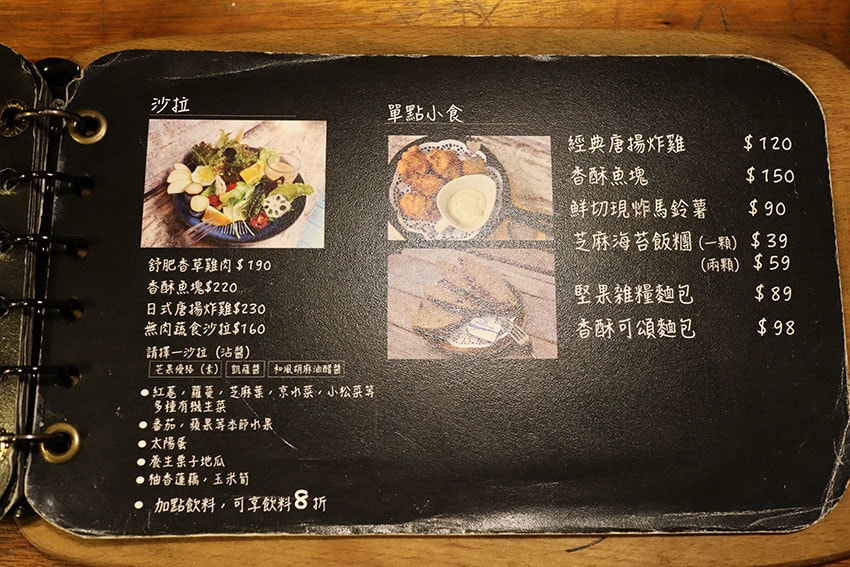 沙拉
舒肥香草雞肉$190
香酥魚塊$220
日式唐揚炸雞$230
無肉蔬食沙拉$160
請擇一沙拉（沾醬）
芒果優格（素） 凱薩醬 和風胡麻油醋醬
●紅卷，蘿蔓，芝麻葉，京水菜，小松菜等
多種有機生菜
●番茄，蘋果等季節水果
●太陽蛋
●養生栗子地瓜
●柚香蓮藕，玉米筍
●加點飲料，可享飲料8折
單點小食
經典唐揚炸雞 $120
香酥魚塊 $150
鮮切現炸馬鈴薯 $90
芝麻海苔飯糰(一顆) $39
(兩顆) $59
堅果雜糧麵包 $89
香酥可頌麵包 $98